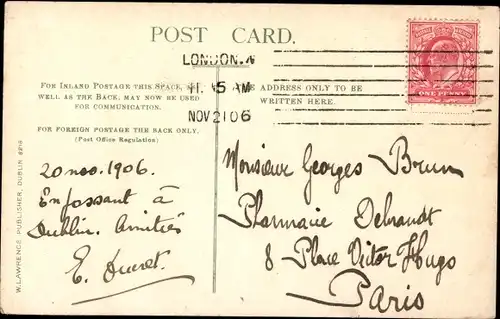 POST CARD.
LONDON.W
11.45 AM
NOV 21 06
FOR INLAND POSTAGE THIS SPACE, AS
WELL AS THE BACK, MAY NOW BE USED
FOR COMMUNICATION.
FOR FOREIGN POSTAGE THE BACK ONLY.
(Post Office Regulation)
THE ADDRESS ONLY TO BE
WRITTEN HERE.
ONE PENNY
W. LAWRENCE, PUBLISHER, DUBLIN
20 nov. 1906.
En passant à
Dublin. Amitiés
E. Ducret.
Monsieur Georges Brun
Pharmacie Debraudt
8 Place Victor Hugo
Paris